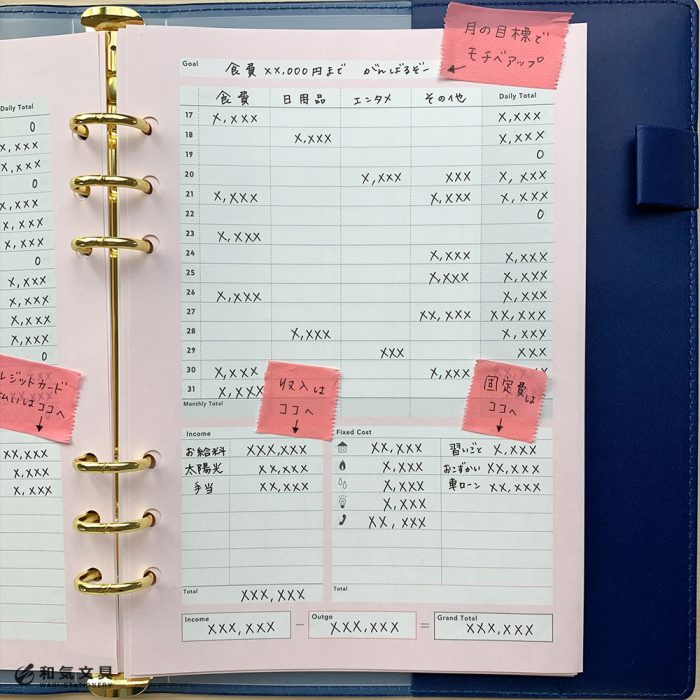 月の目標で
モチベアップ
Goal
食費 XX,000円まで がんばるぞー
食費 日用品 エンタメ その他 Daily Total
17 X,XXX X,XXX
18 X,XXX X,XXX
19 0
20 X,XXX XXX X,XXX
21 X,XXX X,XXX X,XXX
22 0
23 X,XXX X,XXX
24 X,XXX X,XXX
25 X,XXX X,XXX
26 X,XXX X,XXX
27 XX,XXX XX,XXX
28 X,XXX X,XXX
29 XXX XXX
30 X,XXX X,XXX
31 X,XXX
Monthly Total
収入は
ココへ
固定費は
ココへ
Income
お給料 XXX,XXX
太陽光 XX,XXX
手当 XX,XXX
Total XXX,XXX
Fixed Cost
XX,XXX 習いごと X,XXX
X,XXX おこずかい XX,XXX
X,XXX 車ローン XX,XXX
X,XXX
XX,XXX
Total
Income XXX,XXX − Outgo XXX,XXX = Grand Total XXX,XXX
Daily Total
0
X,XXX
X,XXX
0
X,XXX
X,XXX
X,XXX
0
X,XXX
X,XXX
X,XXX
X,XXX
0
レジットカード
ココへ
XX,XXX
X,XXX
X,XXX
和気文具